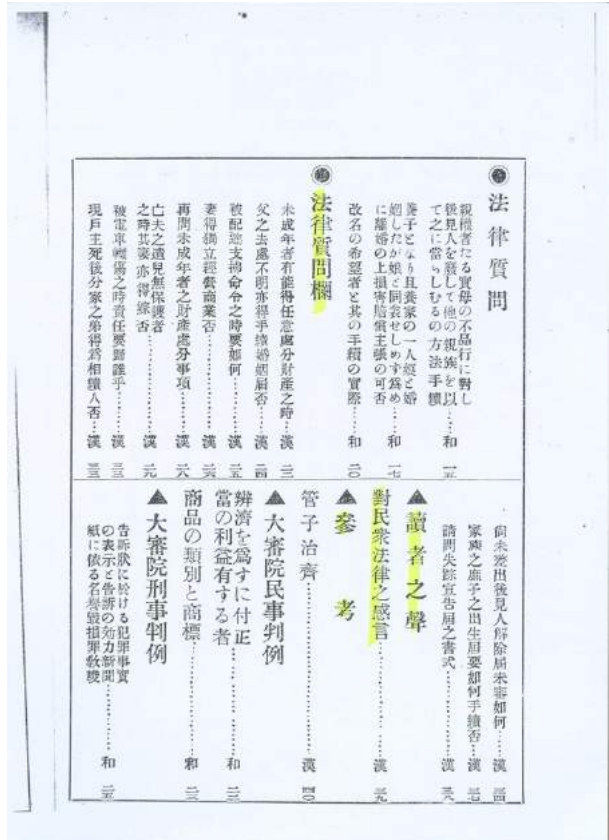 法律質問
親權者たる實母の不品行に對し
後見人を廢して他の親族を以
て之に當らしむるの方法手續……和 一五
養子となり且養家の一人娘と婚
姻したが娘と同衾せしめず爲め
に離婚の上損害賠償主張の可否……和 一七
改名の希望者と其の手續の實際……和 二〇
法律質問欄
未成年者有能得任意處分財產之時……漢 二二
父之去處不明亦得手續婚姻屆否……漢 二四
被配達支拂命令之時要如何……漢 二五
妻得獨立經營商業否……漢 二六
再問未成年者之財產處分事項……漢 二八
亡夫之遺兒無保護者
之時其妾亦得嫁否……漢 二九
被電車轢傷之時責任要歸誰乎……漢 三三
現戶主死後分家之弟得爲相續人否……漢 三三
倘未差出後見人解除屆未審如何……漢 三四
家族之庶子之出生屆要如何手續否……漢 三七
請問失踪宣告屆之書式……漢 三八
讀者之聲
對民衆法律之感言……漢 三九
參考
管子治齊……漢 四〇
大審院民事判例
辨濟を爲すに付正
當の利益有する者……和 二二
商品の類別と商標……和 二三
大審院刑事判例
告訴狀に於ける犯罪事實
の表示と告訴の効力新聞
紙に依る名譽毀損罪敎唆……和 二五